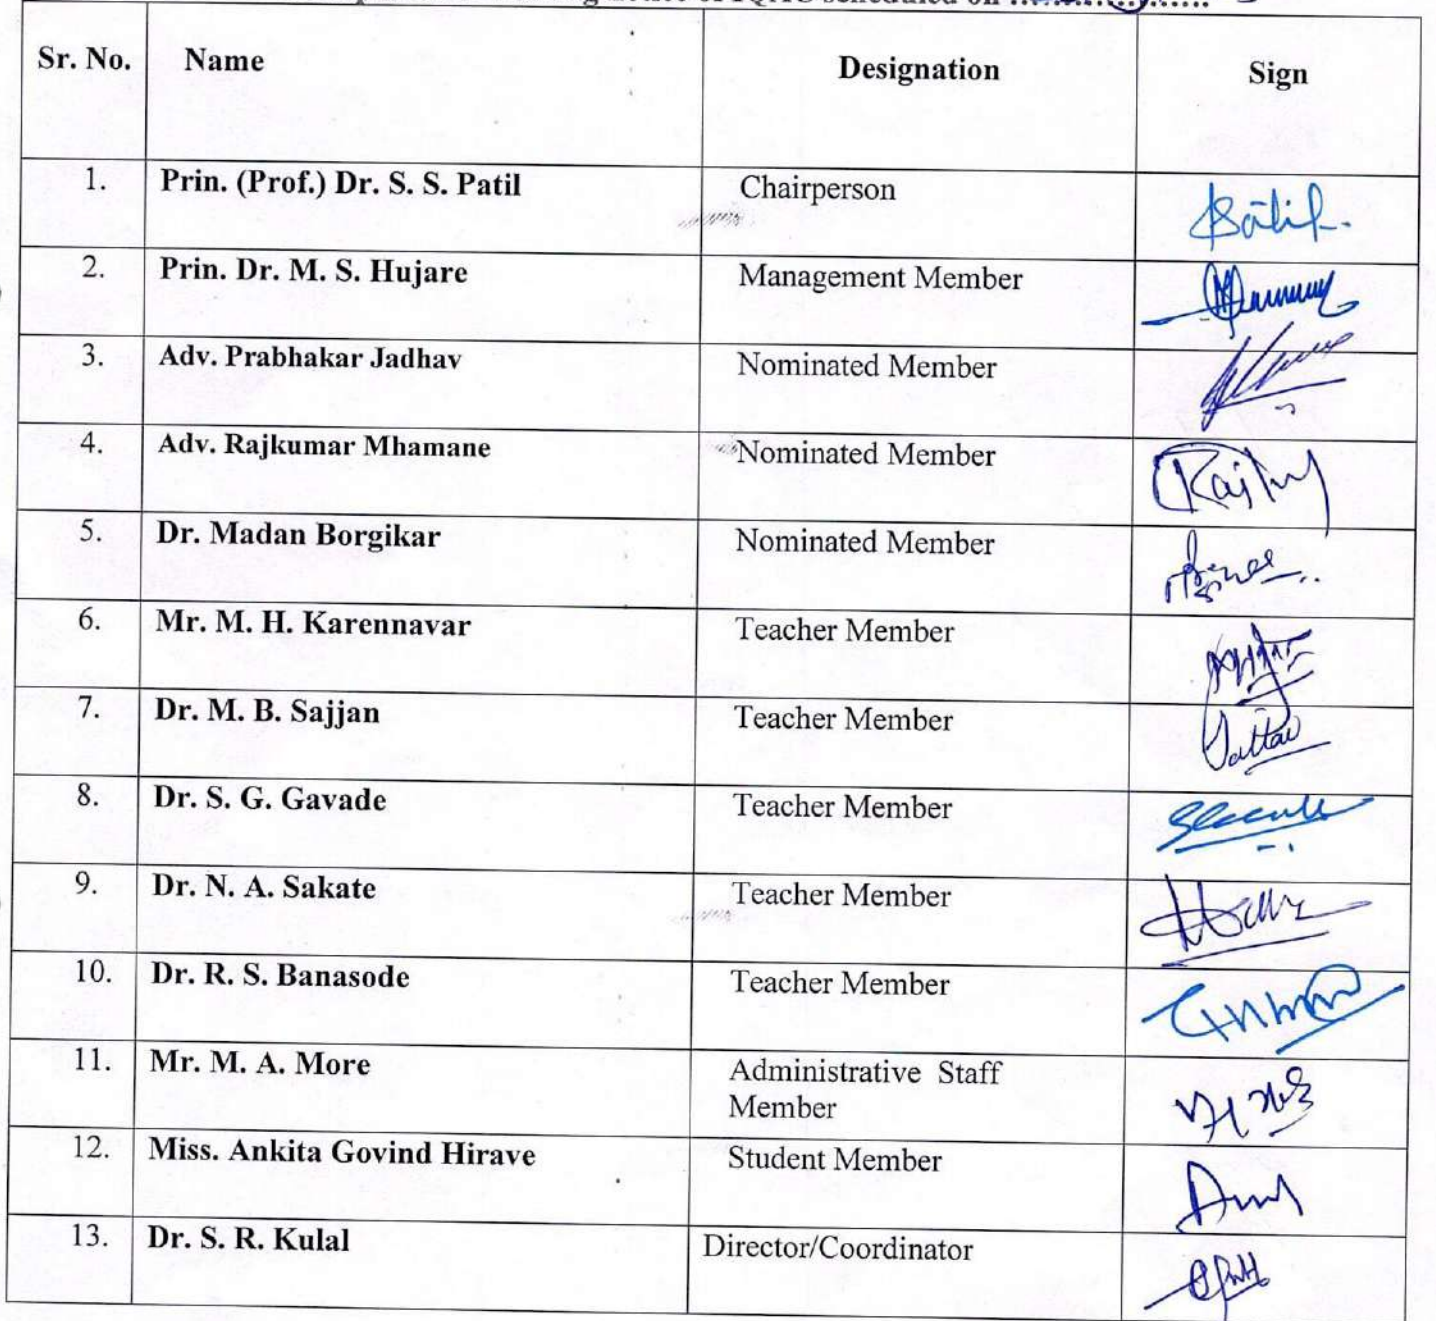 notice of IQAC scheduled on
Sr. No. Name Designation Sign
1. Prin. (Prof.) Dr. S. S. Patil Chairperson
2. Prin. Dr. M. S. Hujare Management Member
3. Adv. Prabhakar Jadhav Nominated Member
4. Adv. Rajkumar Mhamane Nominated Member
5. Dr. Madan Borgikar Nominated Member
6. Mr. M. H. Karennavar Teacher Member
7. Dr. M. B. Sajjan Teacher Member
8. Dr. S. G. Gavade Teacher Member
9. Dr. N. A. Sakate Teacher Member
10. Dr. R. S. Banasode Teacher Member
11. Mr. M. A. More Administrative Staff
Member
12. Miss. Ankita Govind Hirave Student Member
13. Dr. S. R. Kulal Director/Coordinator